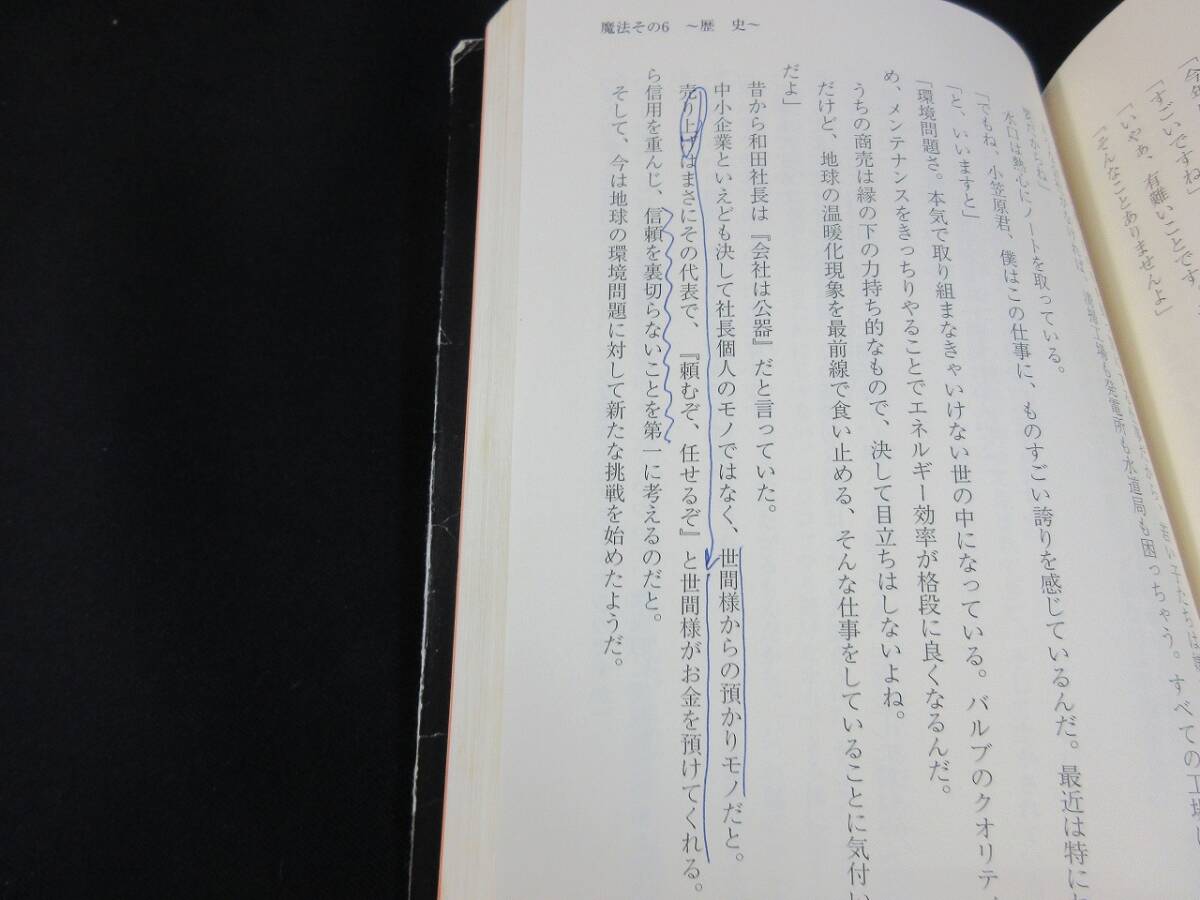 魔法その6　～歴　史～
「今年
「すごいですね
「いやぁ、有難いことです
「そんなことありませんよ」
困っちゃう。すべての工場
水口は熱心にノートを取っている。
「でもね、小笠原君、僕はこの仕事に、ものすごい誇りを感じているんだ。最近は特に
「と、いいますと」
「環境問題さ。本気で取り組まなきゃいけない世の中になっている。バルブのクオリティ
め、メンテナンスをきっちりやることでエネルギー効率が格段に良くなるんだ。
うちの商売は縁の下の力持ち的なもので、決して目立ちはしないよね。
だけど、地球の温暖化現象を最前線で食い止める、そんな仕事をしていることに気付い
だよ」
昔から和田社長は『会社は公器』だと言っていた。
中小企業といえども決して社長個人のモノではなく、世間様からの預かりモノだと。
売り上げはまさにその代表で、『頼むぞ、任せるぞ』と世間様がお金を預けてくれる。
ら信用を重んじ、信頼を裏切らないことを第一に考えるのだと。
そして、今は地球の環境問題に対して新たな挑戦を始めたようだ。